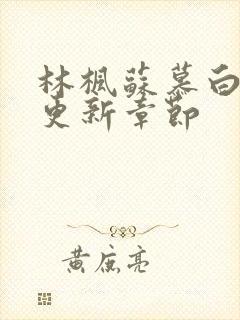 林楓蘇慕白
更新章節
黄庶亮